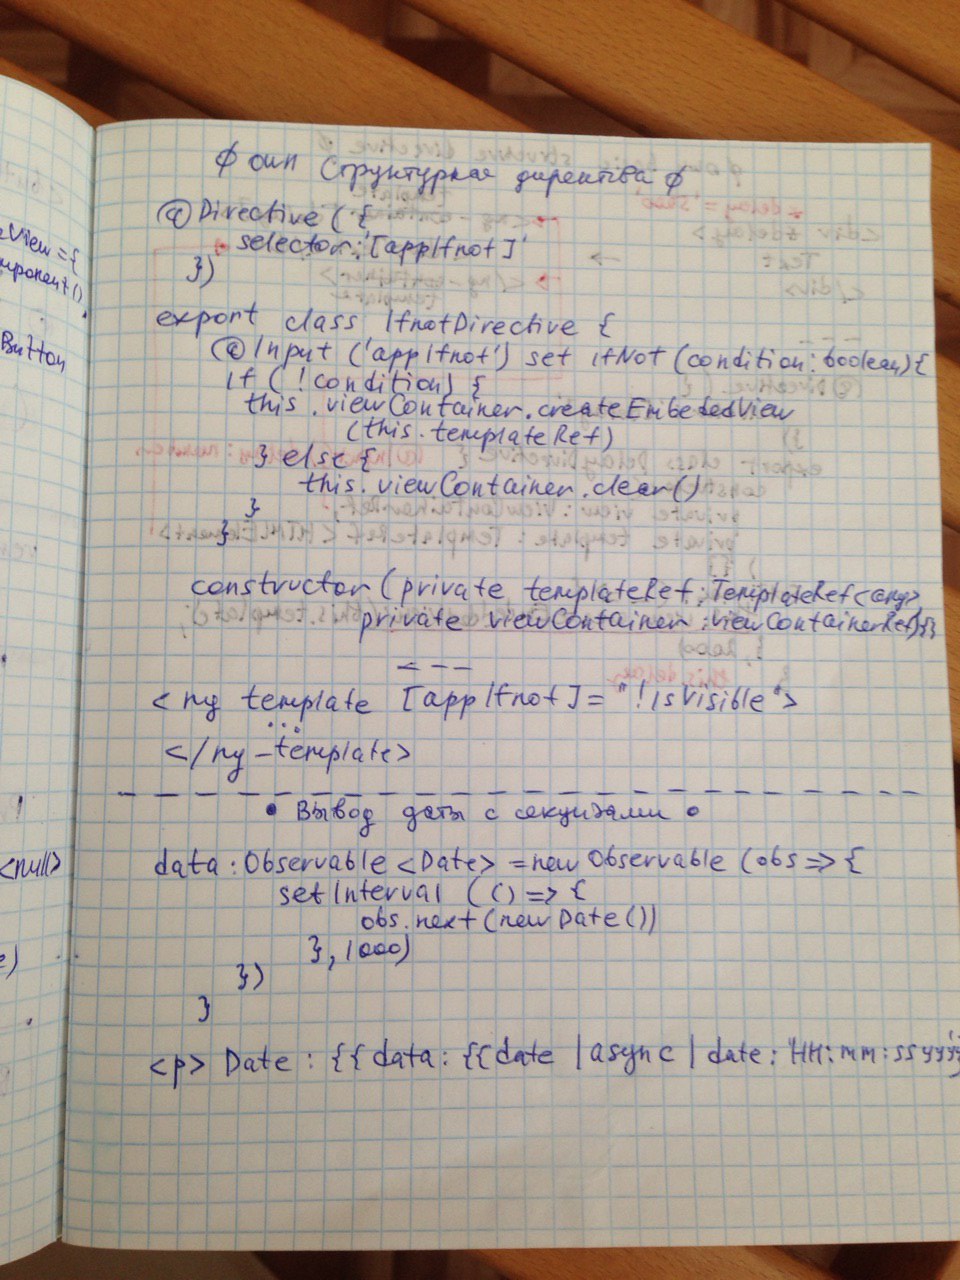 ∮ own Структурная директива ∮
@Directive ('{
selector:'[appIfnot]'
})
export class IfnotDirective {
@Input ('appIfnot') set ifNot (condition: boolean){
if ( ! condition) {
this.viewContainer.createEmbededView
(this.templateRef)
} else {
this.viewContainer.clear()
}
}
constructor (private templateRef: TemplateRef<any>
private viewContainer: viewContainerRef){}
<ng template [appIfnot]="!isVisible">
...
</ng-template>
• Вывод даты с секундами •
data: Observable <Date> = new Observable (obs => {
setInterval (() => {
obs.next (new Date())
}, 1000)
})
}
<p> Date : {{ data: {{ date | async | date: 'HH:mm:ss yyyy
View = {
mponent()
Button
<null>